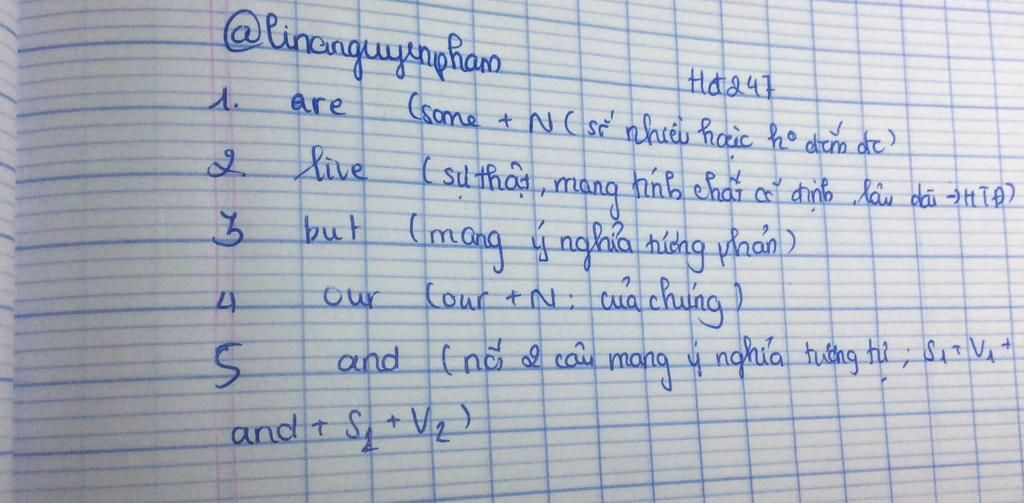 @linanguyenpham
Hd247
1. are (some + N (số nhiều hoặc ko đếm đc)
2. live (sự thật, mang tính chất cố định, lâu dài → HTĐ)
3 but (mang ý nghĩa tương phản)
4 our (our + N: của chúng)
5 and (nối 2 câu mang ý nghĩa tương tự; S1 + V1 +
and + S2 + V2)